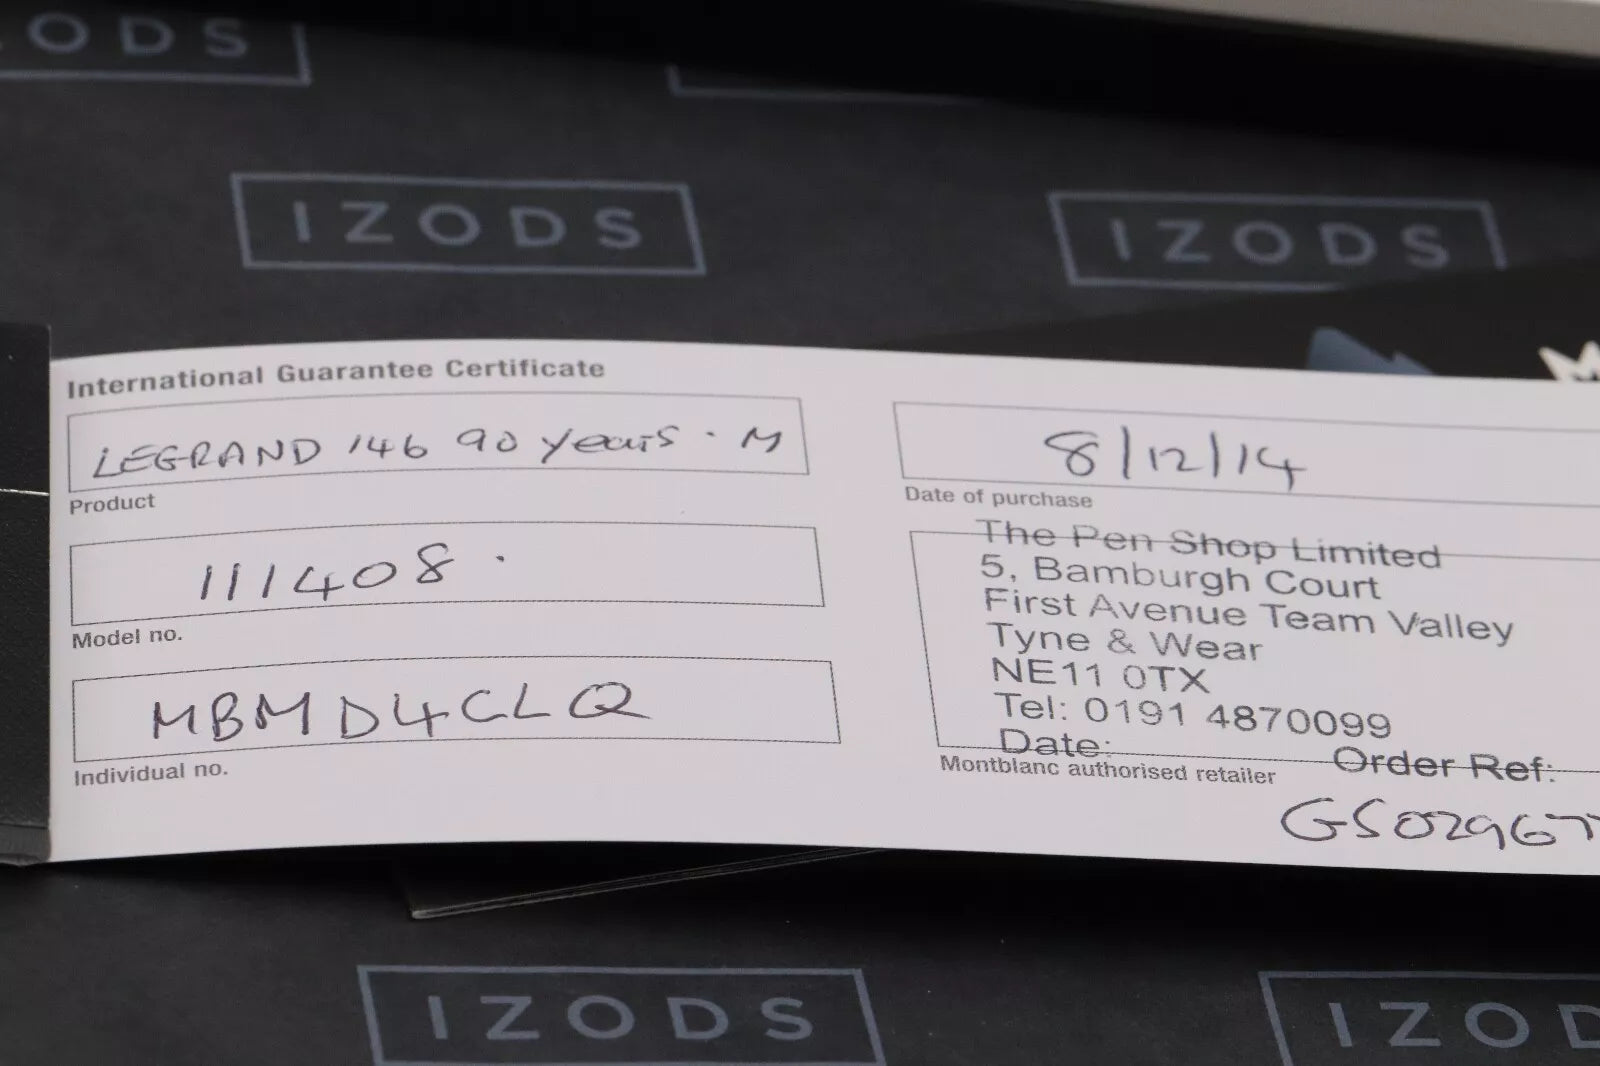 ODS
IZODS
IZODS
International Guarantee Certificate
LEGRAND 146 90 years · M
Product
111408 ·
Model no.
MBMD4CLQ
Individual no.
8/12/14
Date of purchase
The Pen Shop Limited
5, Bamburgh Court
First Avenue Team Valley
Tyne & Wear
NE11 0TX
Tel: 0191 4870099
Date: Order Ref:
Montblanc authorised retailer
IZODS
IZO